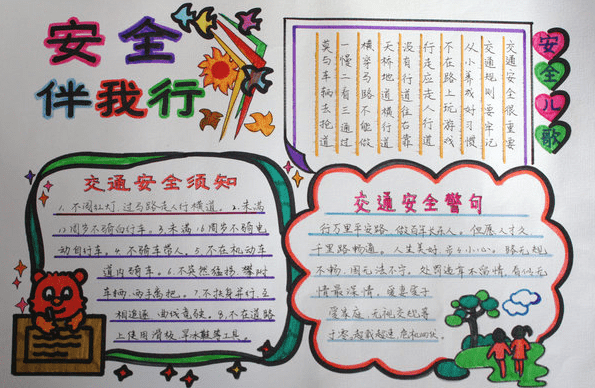 安全
伴我行
安全儿歌
交通安全很重要
交通规则要牢记
从小养成好习惯
不在路上玩游戏
行走应走人行道
没有行道往右靠
天桥地道横行道
横穿马路不能做
一慢二看三通过
莫与车辆去抢道
交通安全须知
1、不闯红灯,过马路走人行横道。2、未满
12周岁不骑自行车。3、未满16周岁不骑电
动自行车。4、不骑车带人。5、不在机动车
道内骑车。6、不突然猛拐、攀附
车辆、两手离把。7、不扶身并行、互
相追逐、曲线竞驶。8、不在道路
上使用滑板、旱冰鞋等工具。
交通安全警句
行万里平安路,做百年长在人。但愿人才久,
千里路畅通。人生美好,步步小心。路无规
不畅,国无法不宁。处罚违章不留情,看似无
情最深情。爱妻爱子
爱家庭,无视交规等
于零。超载超速,危机四伏。